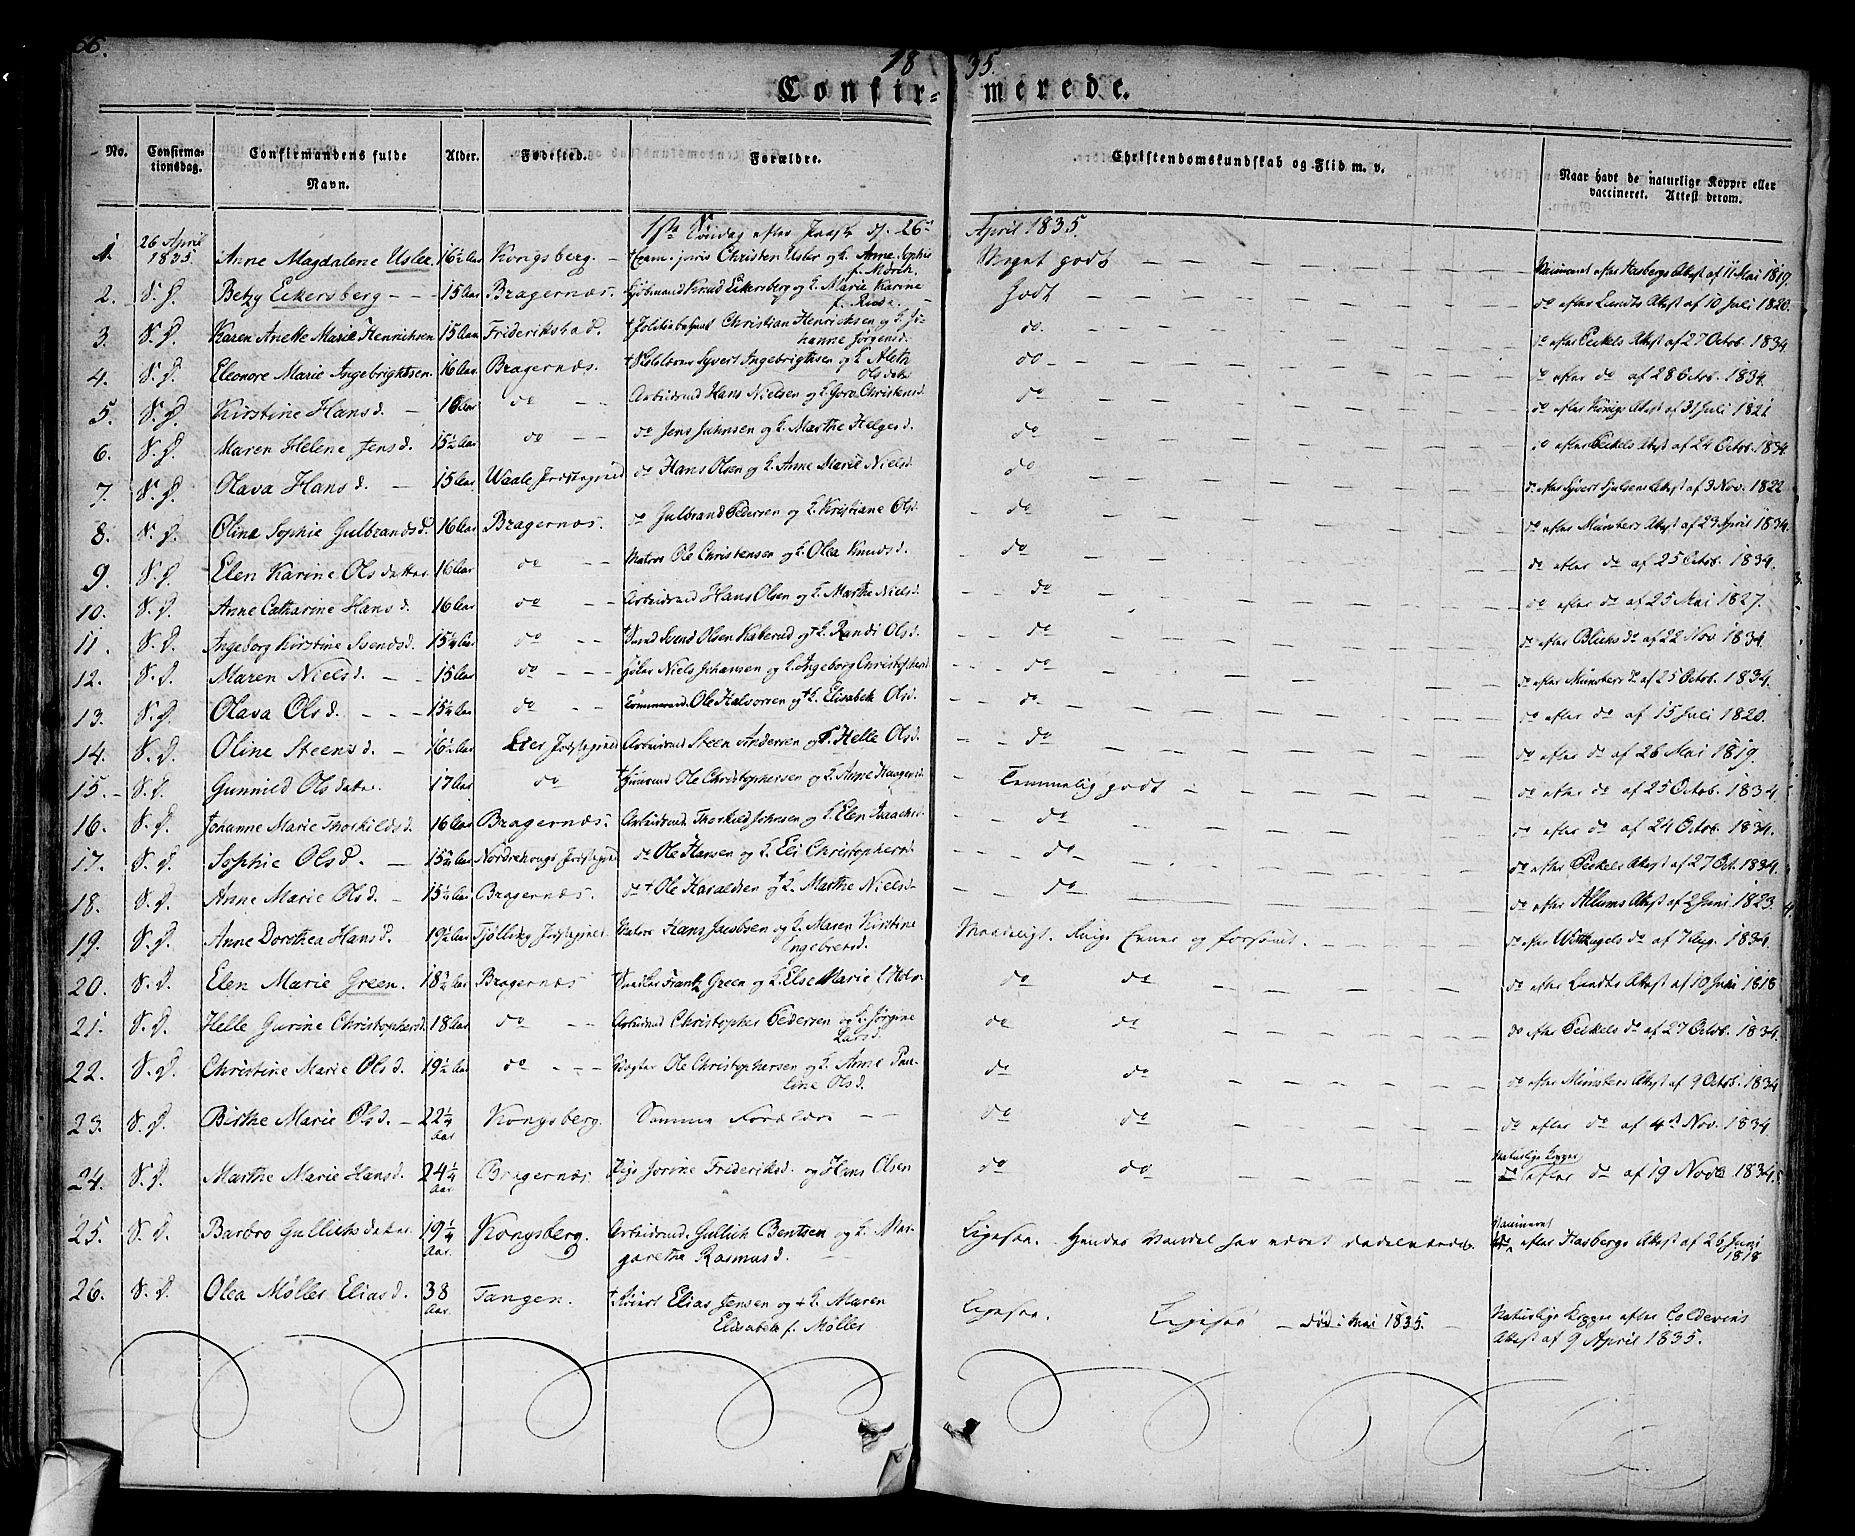 66.
1835.
Confirmerede.
No. Confirmationsdag. Confirmandens fulde Navn. Alder. Fødested. Forældre. Christendomskundskab og Flid m. v. Naar havt de naturlige Kopper eller vaccineret. Attest derom.
1ste Søndag efter Paaske d. 26de April 1835.
1. 26 April 1835. Anne Magdalene Usler 16½ Aar Kongsberg. Exam. juris Christen Usler og H. Anne Sophie f. Mørch Meget godt Vaccineret efter Hasbergs Attest af 11 Mai 1819.
2. S. D. Betzy Eckersberg 15 Aar Bragernæs. Kjøbmand Knud Eckersberg og H. Marie Karine godt do efter Lundts Attest af 10 Juli 1820.
3. S. D. Karen Anette Marie Henrichsen 15 Aar Frideriksha d. Christian Henrichsen og H. Johanne Jørgensd. do. do efter Peckels Attest af 27 Octob. 1834.
4. S. D. Eleonore Marie Ingebrigtsen. 16 Aar Bragernæs. Syvert Ingebrigtsen og H. Aleth Olsdatr do do efter do af 28 Octob. 1834.
5. S. D. Kirstine Hansd. 16 Aar do Arbeidsmd Hans Nielsen og H. Goro Christensd. do do efter Königs Attest af 31 Juli 1821
6. S. D. Maren Helene Jensd. 15½ Aar do do Jens Johnsen og H. Marthe Helgesd. do do efter Peckels Attest af 24 Octob. 1834.
7. S. D. Olava Hansd. 15 Aar Waale Præstegjeld do Hans Olsen og H. Anne Marie Nielsd. do do efter Syvert Attest af 3 Nov. 1822
8. S. D. Oline Sophie Gulbrandsd. 16 Aar Bragernæs. do Gulbrand Pedersen og H. Kristiane Olsd. do do efter Münsters Attest af 23 April 1834.
9. S. D. Elen Karine Olsdatter 16 Aar do Matros Ole Christensen og H. Olea Knudsd. do do efter do af 25 Octob. 1834.
10. S. D. Anne Catharine Hansd. 16 Aar do Arbeidsmd Hans Olsen og H. Marthe Nielsd. do do efter do af 25 Mai 1827.
11. S. D. Ingeborg Kirstine Svendsd. 15¼ Aar do Svend Olsen og H. Randi Olsd. do do efter Blichs do af 22 Nov. 1834.
12. S. D. Maren Nielsd. 15 Aar do Niels Johansen og H. Ingeborg Christophersd do do efter Münsters do af 25 Octob. 1834.
13. S. D. Olava Olsd. 15¼ Aar do Tømmermd. Ole Halvorsen og H. Elisabeth Olsd. do do efter do af 15 Juli 1820.
14. S. D. Oline Steensd. 16½ Aar Lier Præstegjeld Arbeidsmd Steen Andersen og H. Helle Olsd. do do efter do af 26 Mai 1819.
15. S. D. Gunnild Olsdatter. 17 Aar do Ole Christophersen og H. Anne Haagensd. Temmelig godt do efter do af 25 Octob. 1834
16. S. D. Johanne Marie Thorkildsd. 16 Aar Bragernæs. Arbeidsmd. Thorkild Johnsen og H. Elen Isaachsd. do do efter do af 24 Octob. 1834.
17. S. D. Sophie Olsd. 15¾ Aar Nordrehougs Præstegjeld do Ole Hansen og H. Eli Christophersd do do efter Peckels Attest af 27 Oct. 1834.
18. S. D. Anne Marie Olsd. 15½ Aar Bragernæs. do Ole Haraldsen og H. Marthe Nielsd do do efter Allums Attest af 2 Juni 1823.
19. S. D. Anne Dorothea Hansd. 19½ Aar Tjølling Præstegjeld. Matros Hans Jacobsen og H. Maren Kirstine Engebretsd. Maadeligt. Ringe Evner og forsømt. do efter Witthugels do af 7 Aug. 1834.
20. S. D. Elen Marie Green. 18¾ Aar Bragernæs Frantz Green og H. Else Marie f. Holm do do do efter Lundts Attest af 10 Juni 1818
21. S. D. Helle Gurine Christophersd 18 Aar do Arbeidsmd Christopher Pedersen og H. Jørgine Larsd. do do do efter Peckels do af 27 Octob. 1834.
22. S. D. Christine Marie Olsd. 19½ Aar do Vogter Ole Christophersen og H. Anne Pauline Olsd. do do do efter Münsters Attest af 9 Octob. 1834
23. S. D. Birthe Marie Olsd. 22¼ Aar Kongsberg. Samme Forældre do do do efter do af 4de Nov. 1834.
24. S. D. Marthe Marie Hansd. 24¼ Aar Bragernæs Pige Gorine Frideriksd. og Hans Olsen do do Naturlige Kopper efter do af 19 Novb 1834.
25. S. D. Barbro Gullichsdatter 19¼ Aar. Kongsberg. Arbeidsmd. Gullich Bentsen og H. Margarethe Rasmusd. Ligesaa. Hendes Vandel har været dadelværdig. Vaccineret efter Hasbergs Attest af 26 Juni 1818
26. S. D. Olea Møller Eliasd. 38 Aar. Tangen. Elias Jensen og H. Maren Elisabeth f. Møller Ligesaa. Ligesaa død i Mai 1835. Naturlige Kopper efter Coldevins Attest af 9 April 1835.